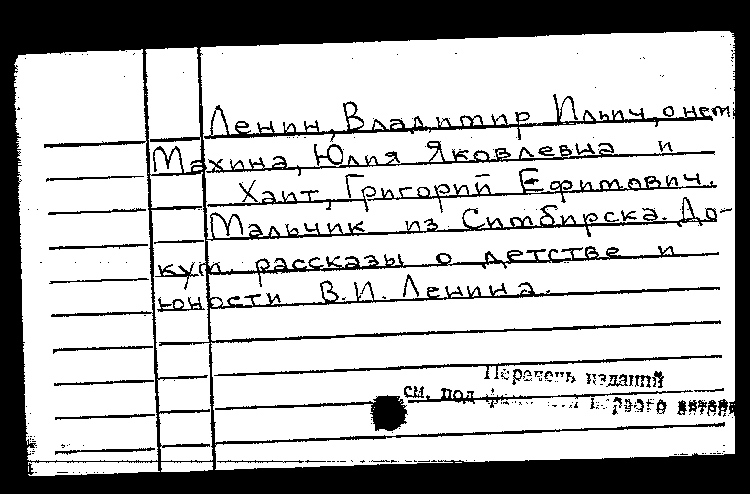 Ленин, Владимир Ильич, о нем
Махина, Юлия Яковлевна и
Хаит, Григорий Ефимович.
Мальчик из Симбирска. До-
кум. рассказы о детстве и
юности В.И. Ленина.
Перечень изданий
см. под первого автора